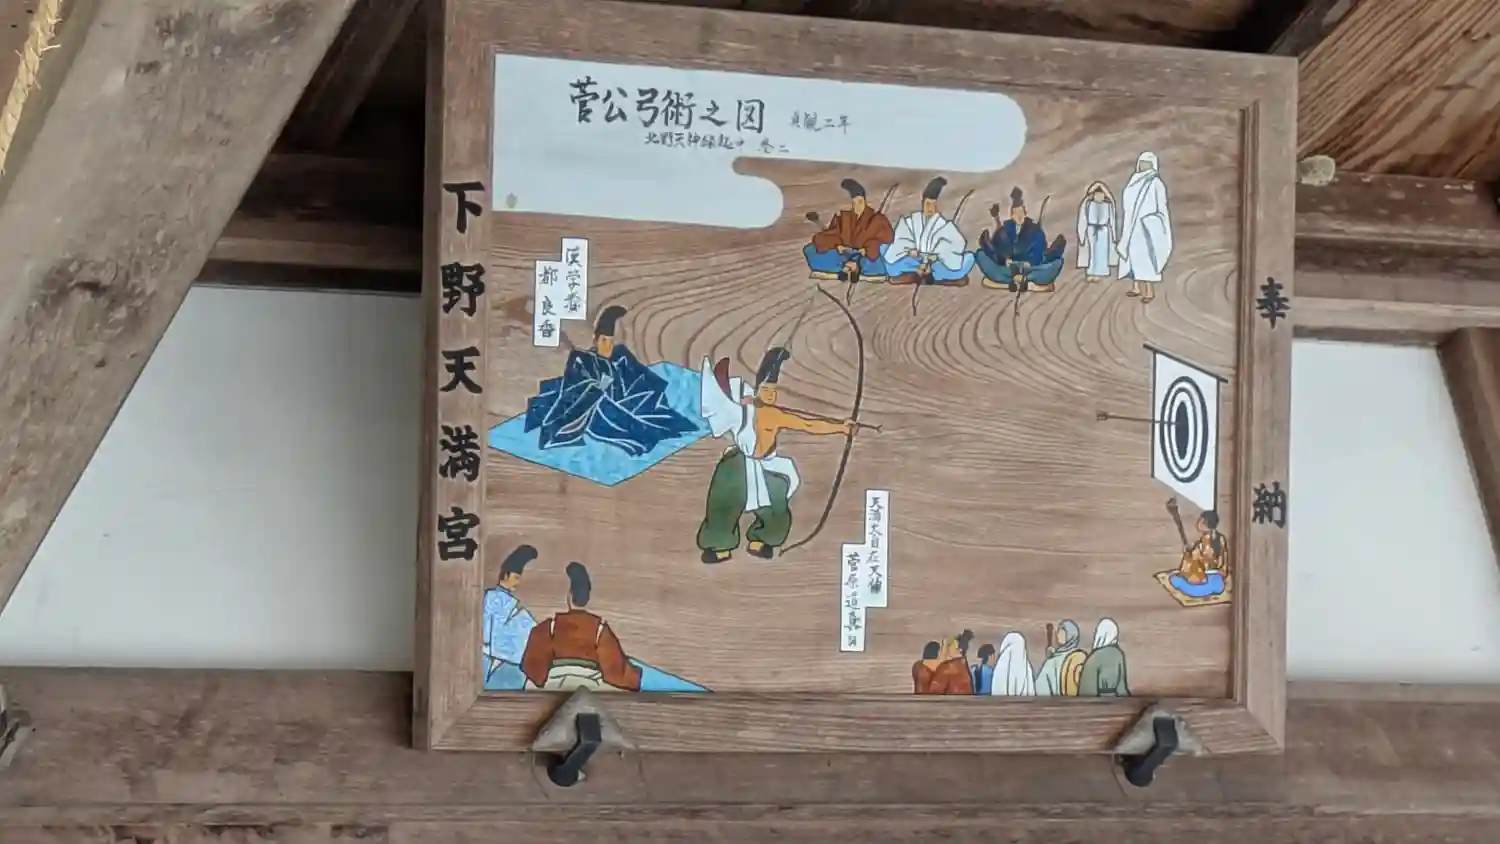 菅公弓術之図 貞観二年
北野天神縁起中 巻二
奉納
下野天満宮
漢学者
都良香
天満大自在天神
菅原道真